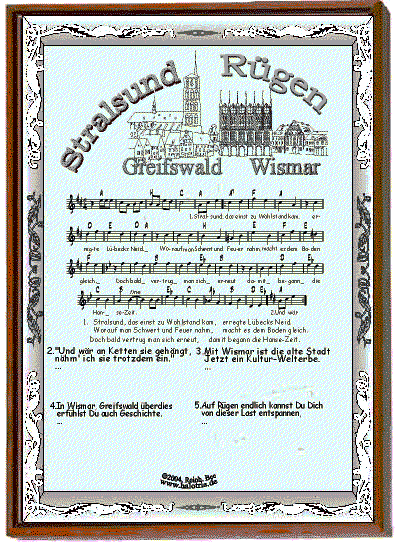 Stralsund Rügen
Greifswald Wismar
1.Stral-sund, das einst zu Wohlstand kam, er-
regte Lübecks Neid. Wo-rauf man Schwert und Feuer nahm, macht es dem Bo-den
gleich. Doch bald ver-trug man sich er-neut da-mit be-gann die
Han-se-Zeit. 2.Und wär
1. Stralsund, das einst zu Wohlstand kam, erregte Lübecks Neid.
Worauf man Schwert und Feuer nahm, macht es dem Boden gleich.
Doch bald vertrug man sich erneut, damit begann die Hanse-Zeit.
2."Und wär an Ketten sie gehängt,
nähm' ich sie trotzdem ein."
...
3.Mit Wismar ist die alte Stadt
Jetzt ein Kultur-Welterbe.
...
4.In Wismar, Greifswald überdies
erfühlst Du auch Geschichte.
...
5.Auf Rügen endlich kannst Du Dich
von dieser Last entspannen,
...
©2004, Reinh.